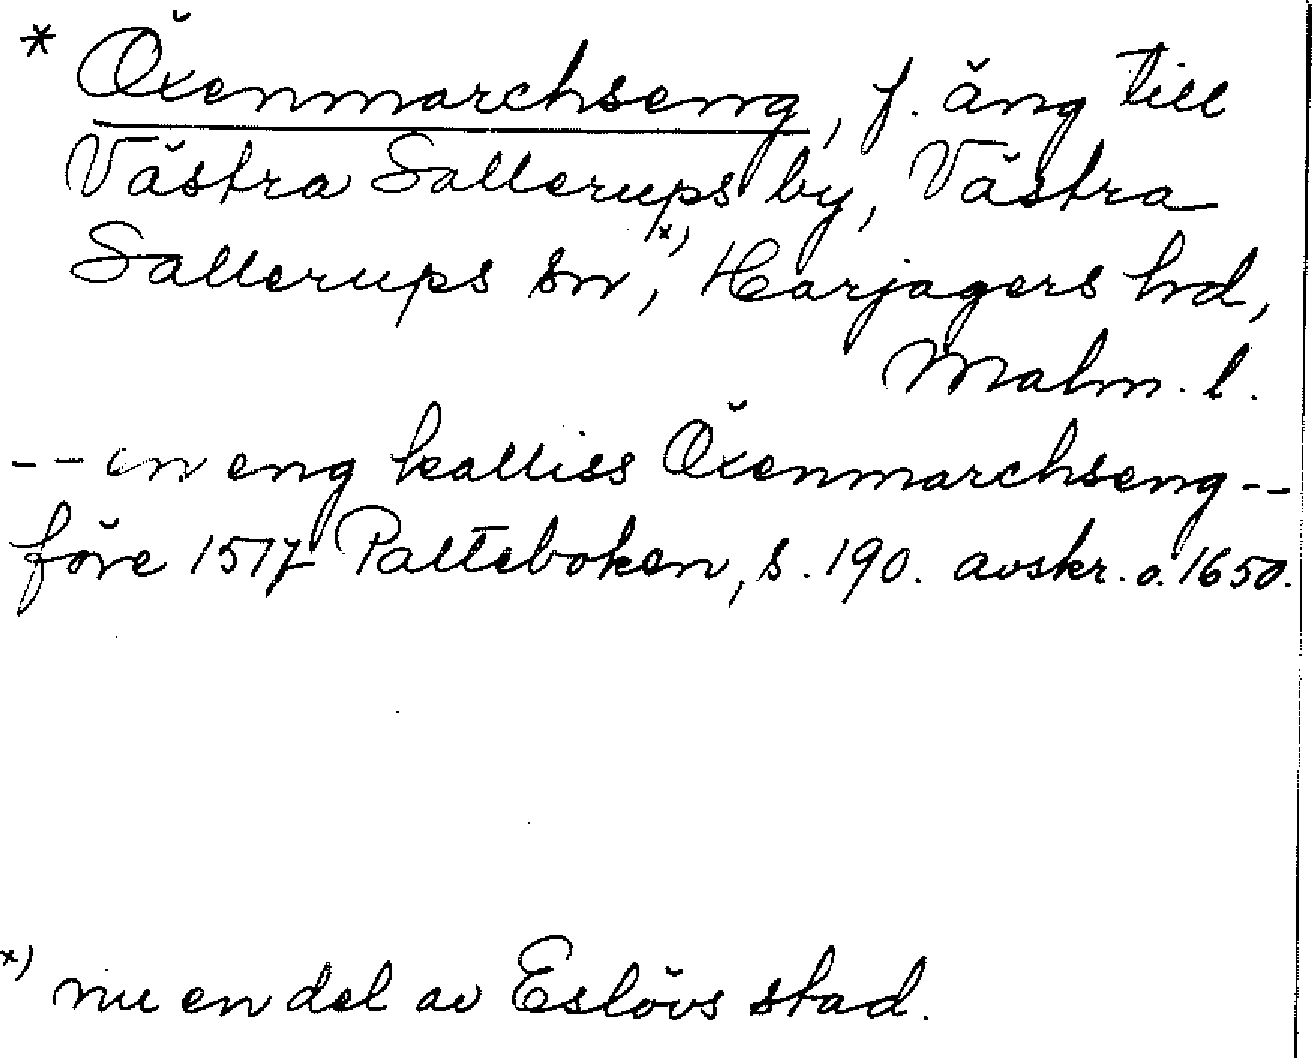 * Öxenmarchseng, f. äng till
Västra Sallerups by, Västra
Sallerups sn x), Harjagers hd,
Malm. l.
-- en eng kalliss Öxenmarchseng --
före 1517 Palteboken, s. 190. avskr. o. 1650.
x) nu en del av Eslövs stad.